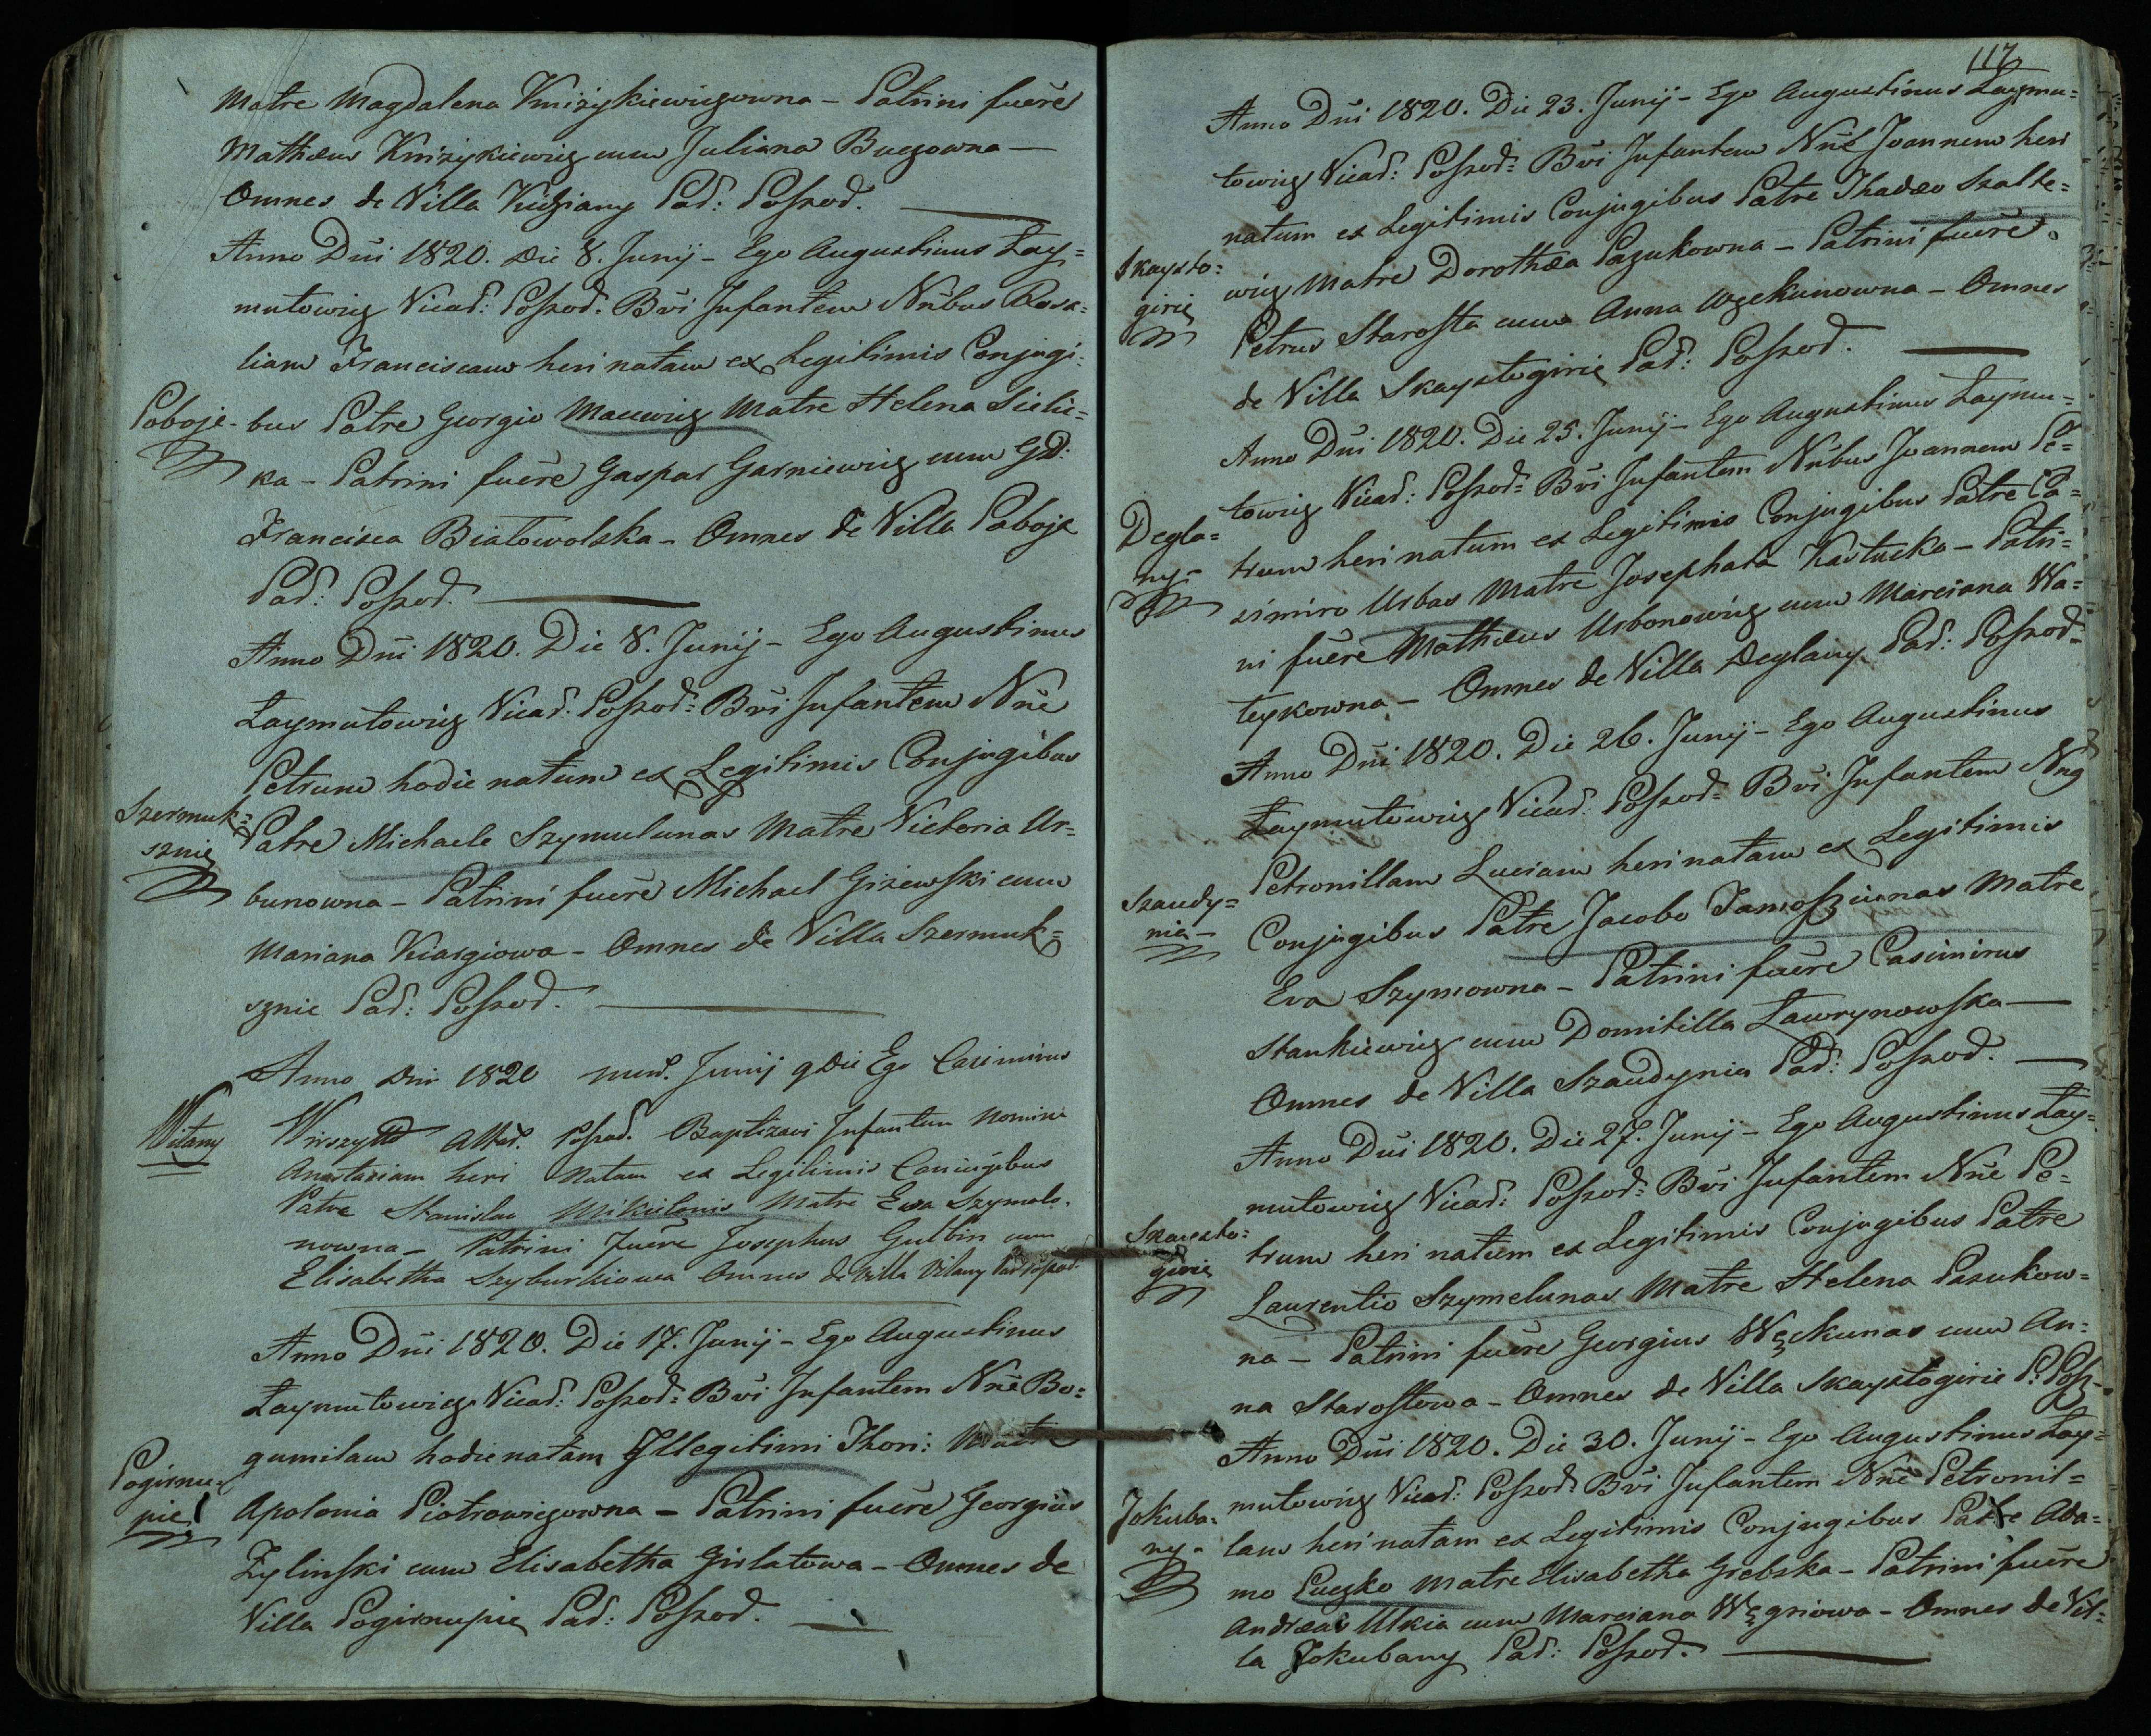 Matre Magdalena Kniżykiewiczowna – Patrini fuere
Mathæus Kniżykiewicz cum Juliana Buczowna –
Omnes de Villa Kidziany Par: Poszod.
Anno Dni 1820. Die 8. Junij – Ego Augustinus Łay=
mutowicz Vicar: Poszod. Bvi Infantem Nnbus Rosa=
liam Franciscam heri natam ex Legitimis Conjugi=
Poboje – bus Patre Georgio Macewicz Matre Helena Sielic=
ka – Patrini fuere Gaspar Garniewicz cum GD:
Francisca Białowolska – Omnes de Villa Poboje
Par: Poszod.
Anno Dni 1820. Die 8. Junij – Ego Augustinus
Łaymutowicz Vicar: Poszod= Bvi Infantem Nne
Petrum hodie natum ex Legitimis Conjugibus
Szermuk=
sznie
Patre Michaele Szymulunas Matre Victoria Ur=
bunowna – Patrini fuere Michael Giżewski cum
Mariana Kiargiowa – Omnes de Villa Szermuk=
sznie Par: Poszod.
Anno Dni 1820 mens. Junij 9 Die Ego Casimirus
Witany
Wirszyłło Altar. Poszod. Baptizavi Infantem Nomine
Anastasiam heri Natam ex Legitimis Coniugibus
Patre Stanislao Mikulonis Matre Ewa Szymolo=
nowna – Patrini fuere Josephus Gulbin cum
Elisabetha Szyburkiowa Omnes de Villa Vitany Par Poszod.
Anno Dni 1820. Die 17. Junij – Ego Augustinus
Łaymutowicz Vicar: Poszod= Bvi Infantem Nne Bo=
gumilam hodie natam Illegitimi Thori: Matre
Pogirnu=
pie
Apolonia Piotrowiczowna – Patrini fuere Georgius
Żylinski cum Elisabetha Girlatowa – Omnes de
Villa Pogirnupie Par: Poszod.
117
Anno Dni 1820. Die 23. Junij – Ego Augustinus Łaymu=
towicz Vicar: Poszod= Bvi Infantem Nne Joannem heri
natum ex Legitimis Conjugibus Patre Thadæo Szalte=
Skaysto=
girie
wicz Matre Dorothæa Pazukowna – Patrini fuere
Petrus Starosta cum Anna Węckunowna – Omnes
de Villa Skaystogirie Par: Poszod.
Anno Dni 1820. Die 25. Junij – Ego Augustinus Łaymu=
towicz Vicar: Poszod= Bvi Infantem Nnbus Joannem Pe=
Degla=
ny –
trum heri natum ex Legitimis Conjugibus Patre Ca=
simiro Urbas Matre Josephata Kastucka – Patri=
ni fuere Mathæus Urbonowicz cum Marciana Wa=
teykowna – Omnes de Villa Deglainy Par: Poszod=
Anno Dni 1820. Die 26. Junij – Ego Augustinus
Łaymutowicz Vicar: Poszod= Bvi Infantem Nnq
Petronillam Luciam heri natam ex Legitimis
Szaudy=
nie –
Conjugibus Patre Jacobo Jamoszcunas Matre
Eva Szymowna – Patrini fuere Casimirus
Stankiewicz cum Domitilla Ławrynowska –
Omnes de Villa Szaudynie Par: Poszod.
Anno Dni 1820. Die 27. Junij – Ego Augustinus Łay=
mutowicz Vicar: Poszod= Bvi Infantem Nne Pe=
Skaysto=
girie
trum heri natum ex Legitimis Conjugibus Patre
Laurentio Szymelunas Matre Helena Pazukow=
na – Patrini fuere Georgius Węckunas cum An=
na Starostowa – Omnes de Villa Skaystogirie P: Posz
Anno Dni 1820. Die 30. Junij – Ego Augustinus Łay=
mutowicz Vicar: Poszod= Bvi Infantem Nne Petronil=
Jokuba=
ny –
lam heri natam ex Legitimis Conjugibus Patre Ada=
mo Puczko Matre Elisabetha Grebska – Patrini fuere
Andreas Ulkia cum Marciana Węgriowa – Omnes de Vil=
la Jokubany Par: Poszod.